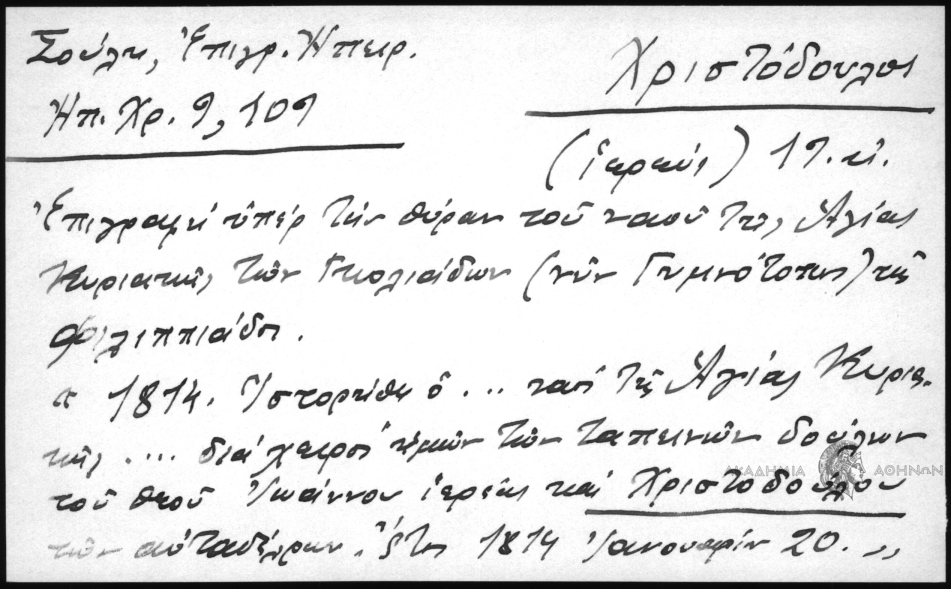 Σούλη, Ἐπιγρ. Ἠπειρ.
Ἠπ. Χρ. 9, 109
Χριστόδουλος
(ἱερεύς) 19. αἰ.
Ἐπιγραφή ὑπέρ τήν θύραν τοῦ ναοῦ τῆς Ἁγίας
Κυριακῆς τῶν Γκολιάδων (νῦν Γυμνότοπος) τῆς
Φιλιππιάδος.
" 1814. Ἱστορήθη ὁ ... ναός τῆς Ἁγίας Κυρια-
κῆς .... διά χειρός ἡμῶν τῶν ταπεινῶν δούλων
τοῦ θεοῦ Ἰωάννου ἱερέως καί Χριστοδούλου
τῶν αὐταδέλφων. Ἔτος 1814 Ἰανουαρίου 20. "
ΑΚΑΔΗΜΙΑ ΑΘΗΝΩΝ